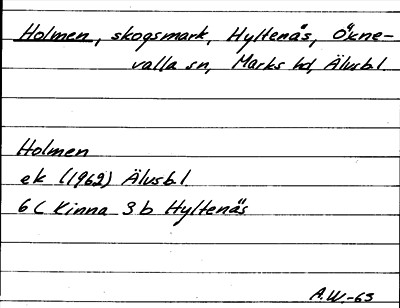 Holmen, skogsmark, Hyltenäs, Öxne-
valla sn, Marks hd, Älvsb.l.
Holmen
ek (1962) Älvsb.l
6 C Kinna 3 b Hyltenäs
A.W.-63